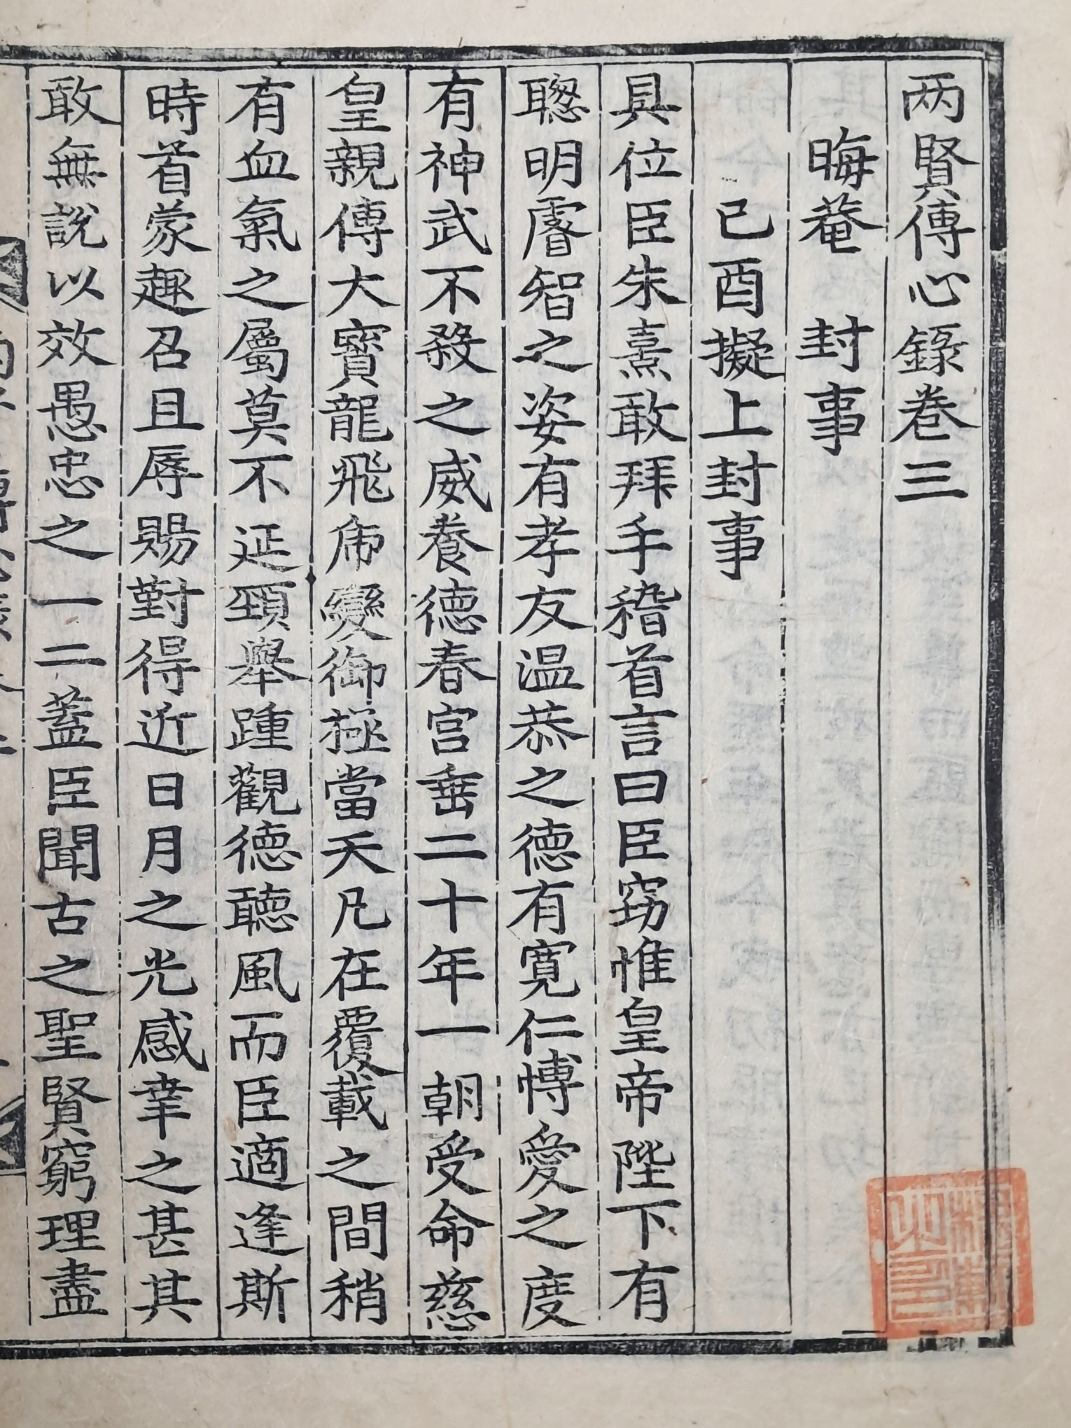 两賢傳心錄卷三
晦菴 封事
己酉擬上封事
具位臣朱熹敢拜手稽首言曰臣竊惟皇帝陛下有
聦明睿智之姿有孝友温恭之德有寛仁博愛之度
有神武不殺之威養德春宫垂二十年一朝受命慈
皇親傳大寳龍飛虎變御極當天凡在覆載之間稍
有血氣之屬莫不延頸舉踵觀德聽風而臣適逢斯
時首蒙趣召且辱賜對得近日月之光感幸之甚其
敢無說以效愚忠之一二盖臣聞古之聖賢窮理盡